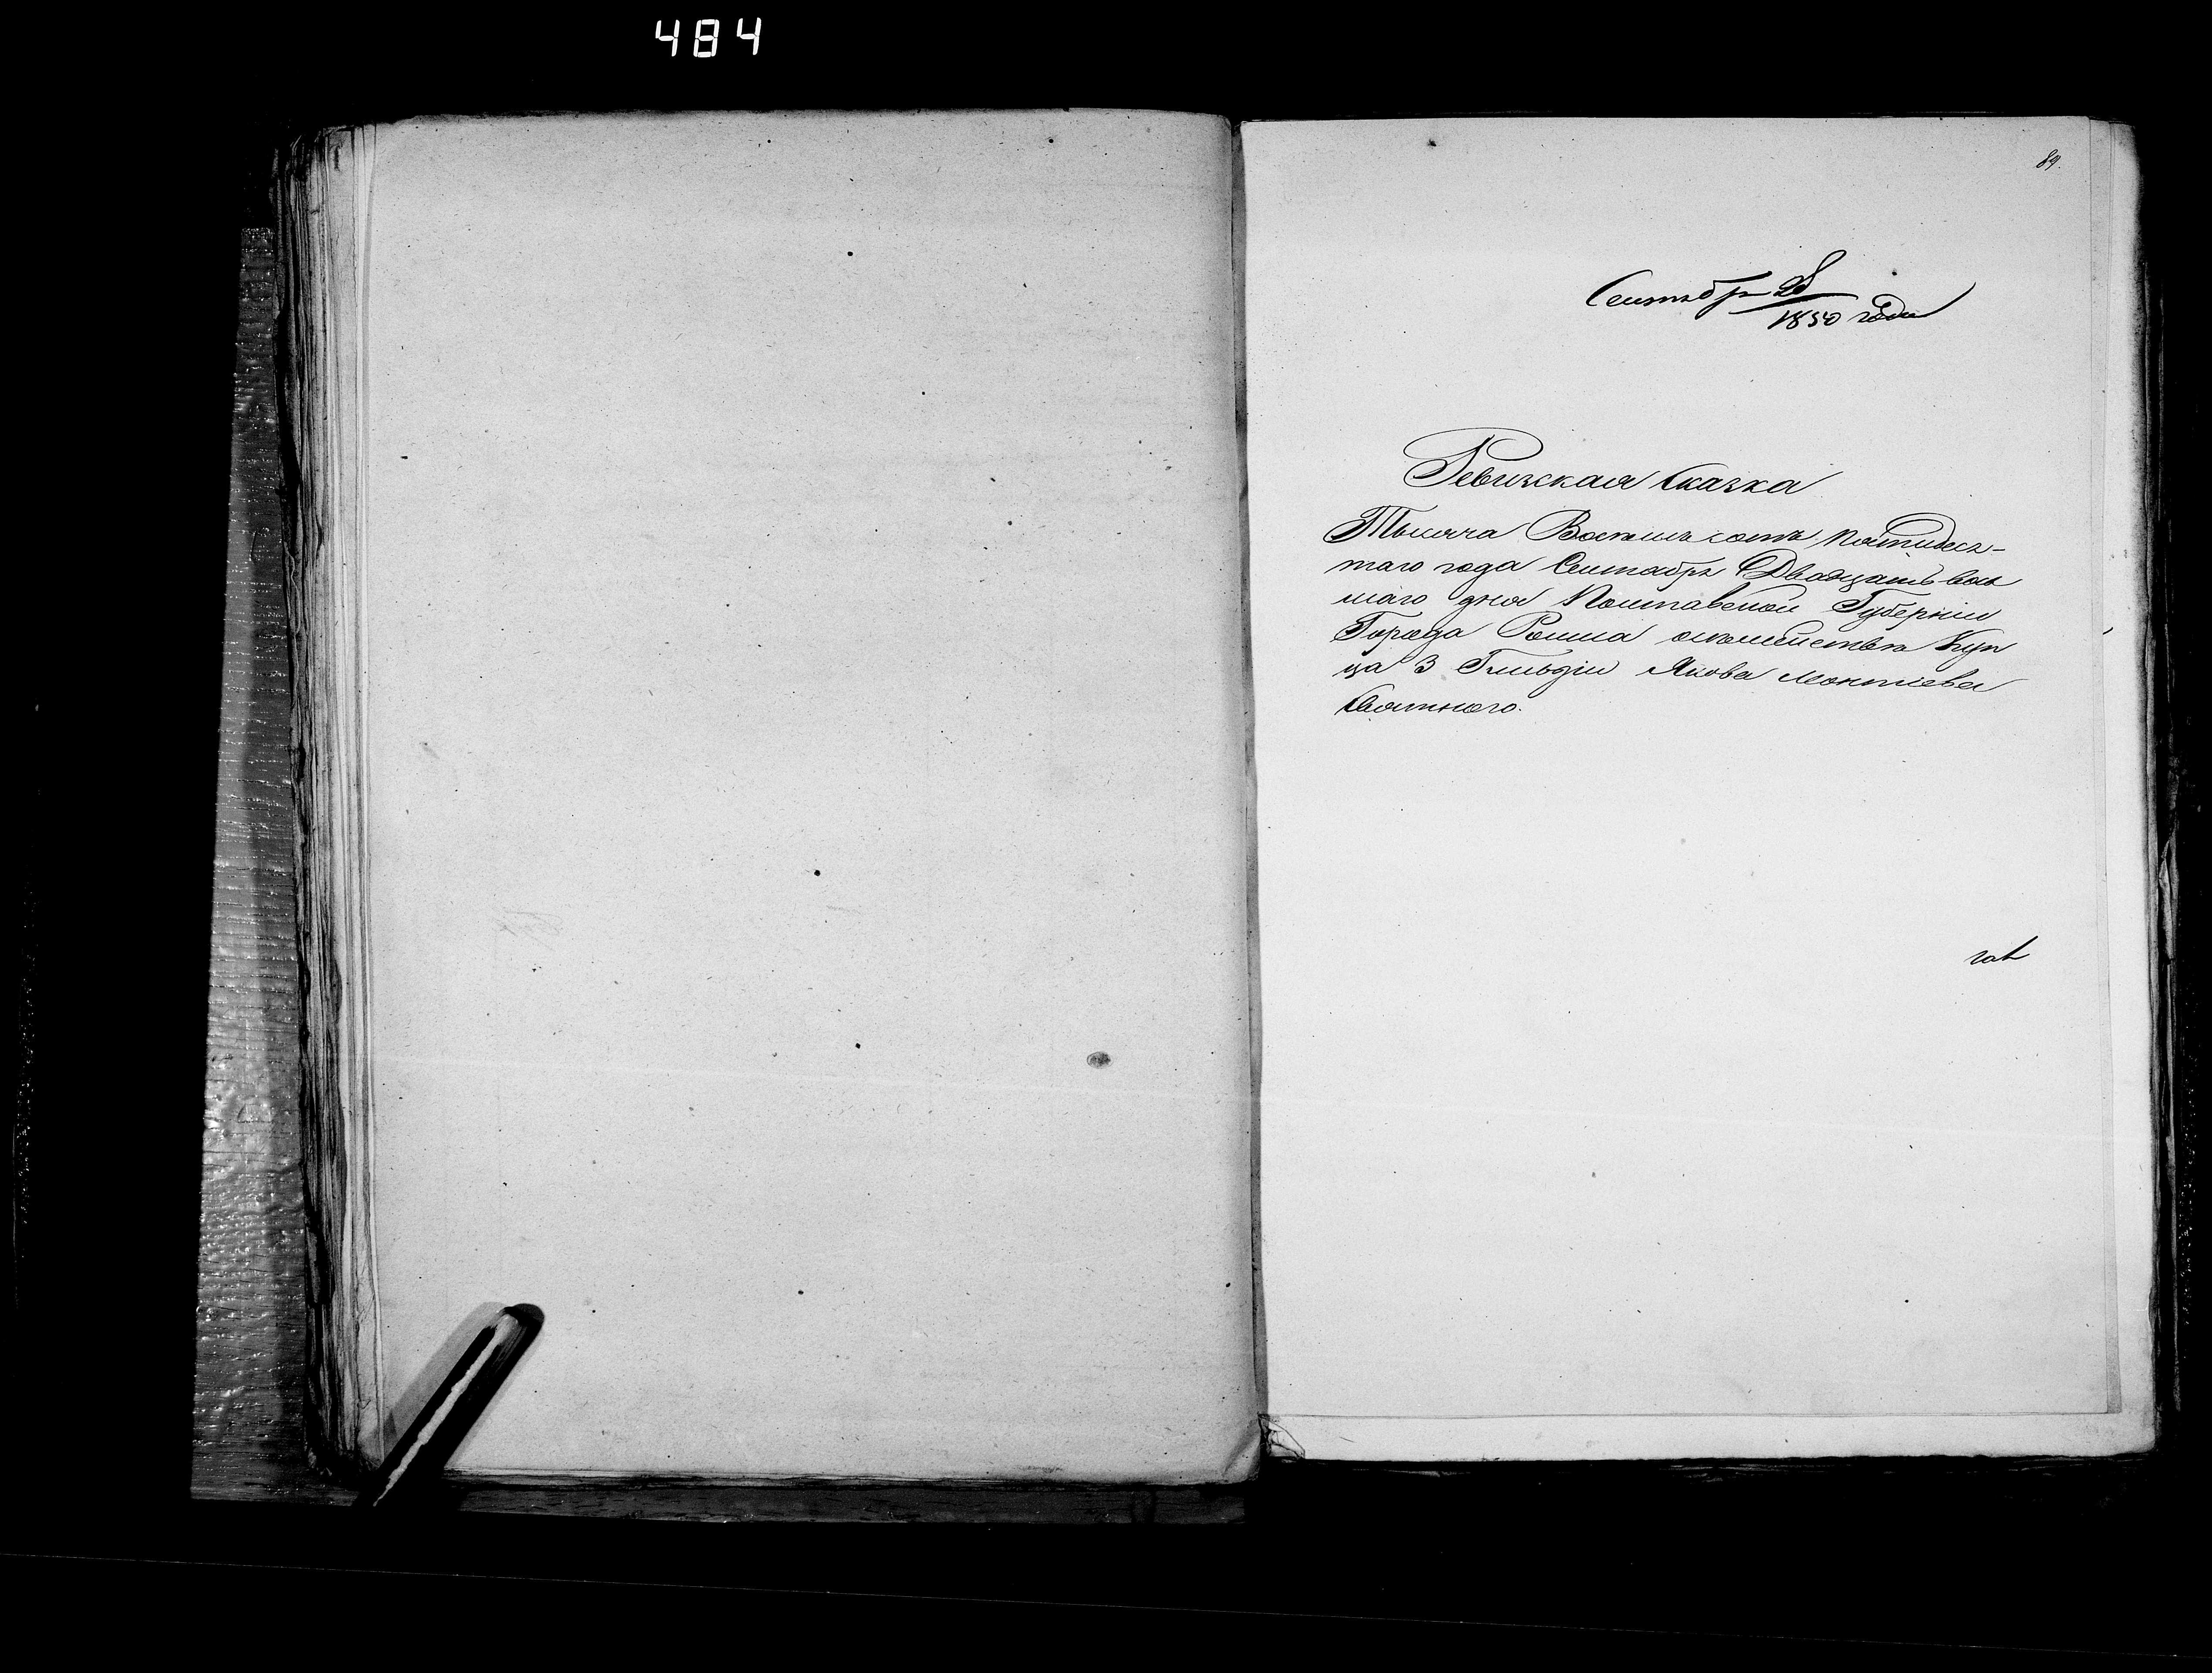 484
89.
Сентябр 28
1850 года
Ревизская Сказка
Тысяча Восемь сотъ пятидеся-
таго года Сентября Двадцать вось
маго дня Полтавской Губерніи
Города Ромна о семействѣ Куп
ца 3 Гильдіи Якова Леонтіева